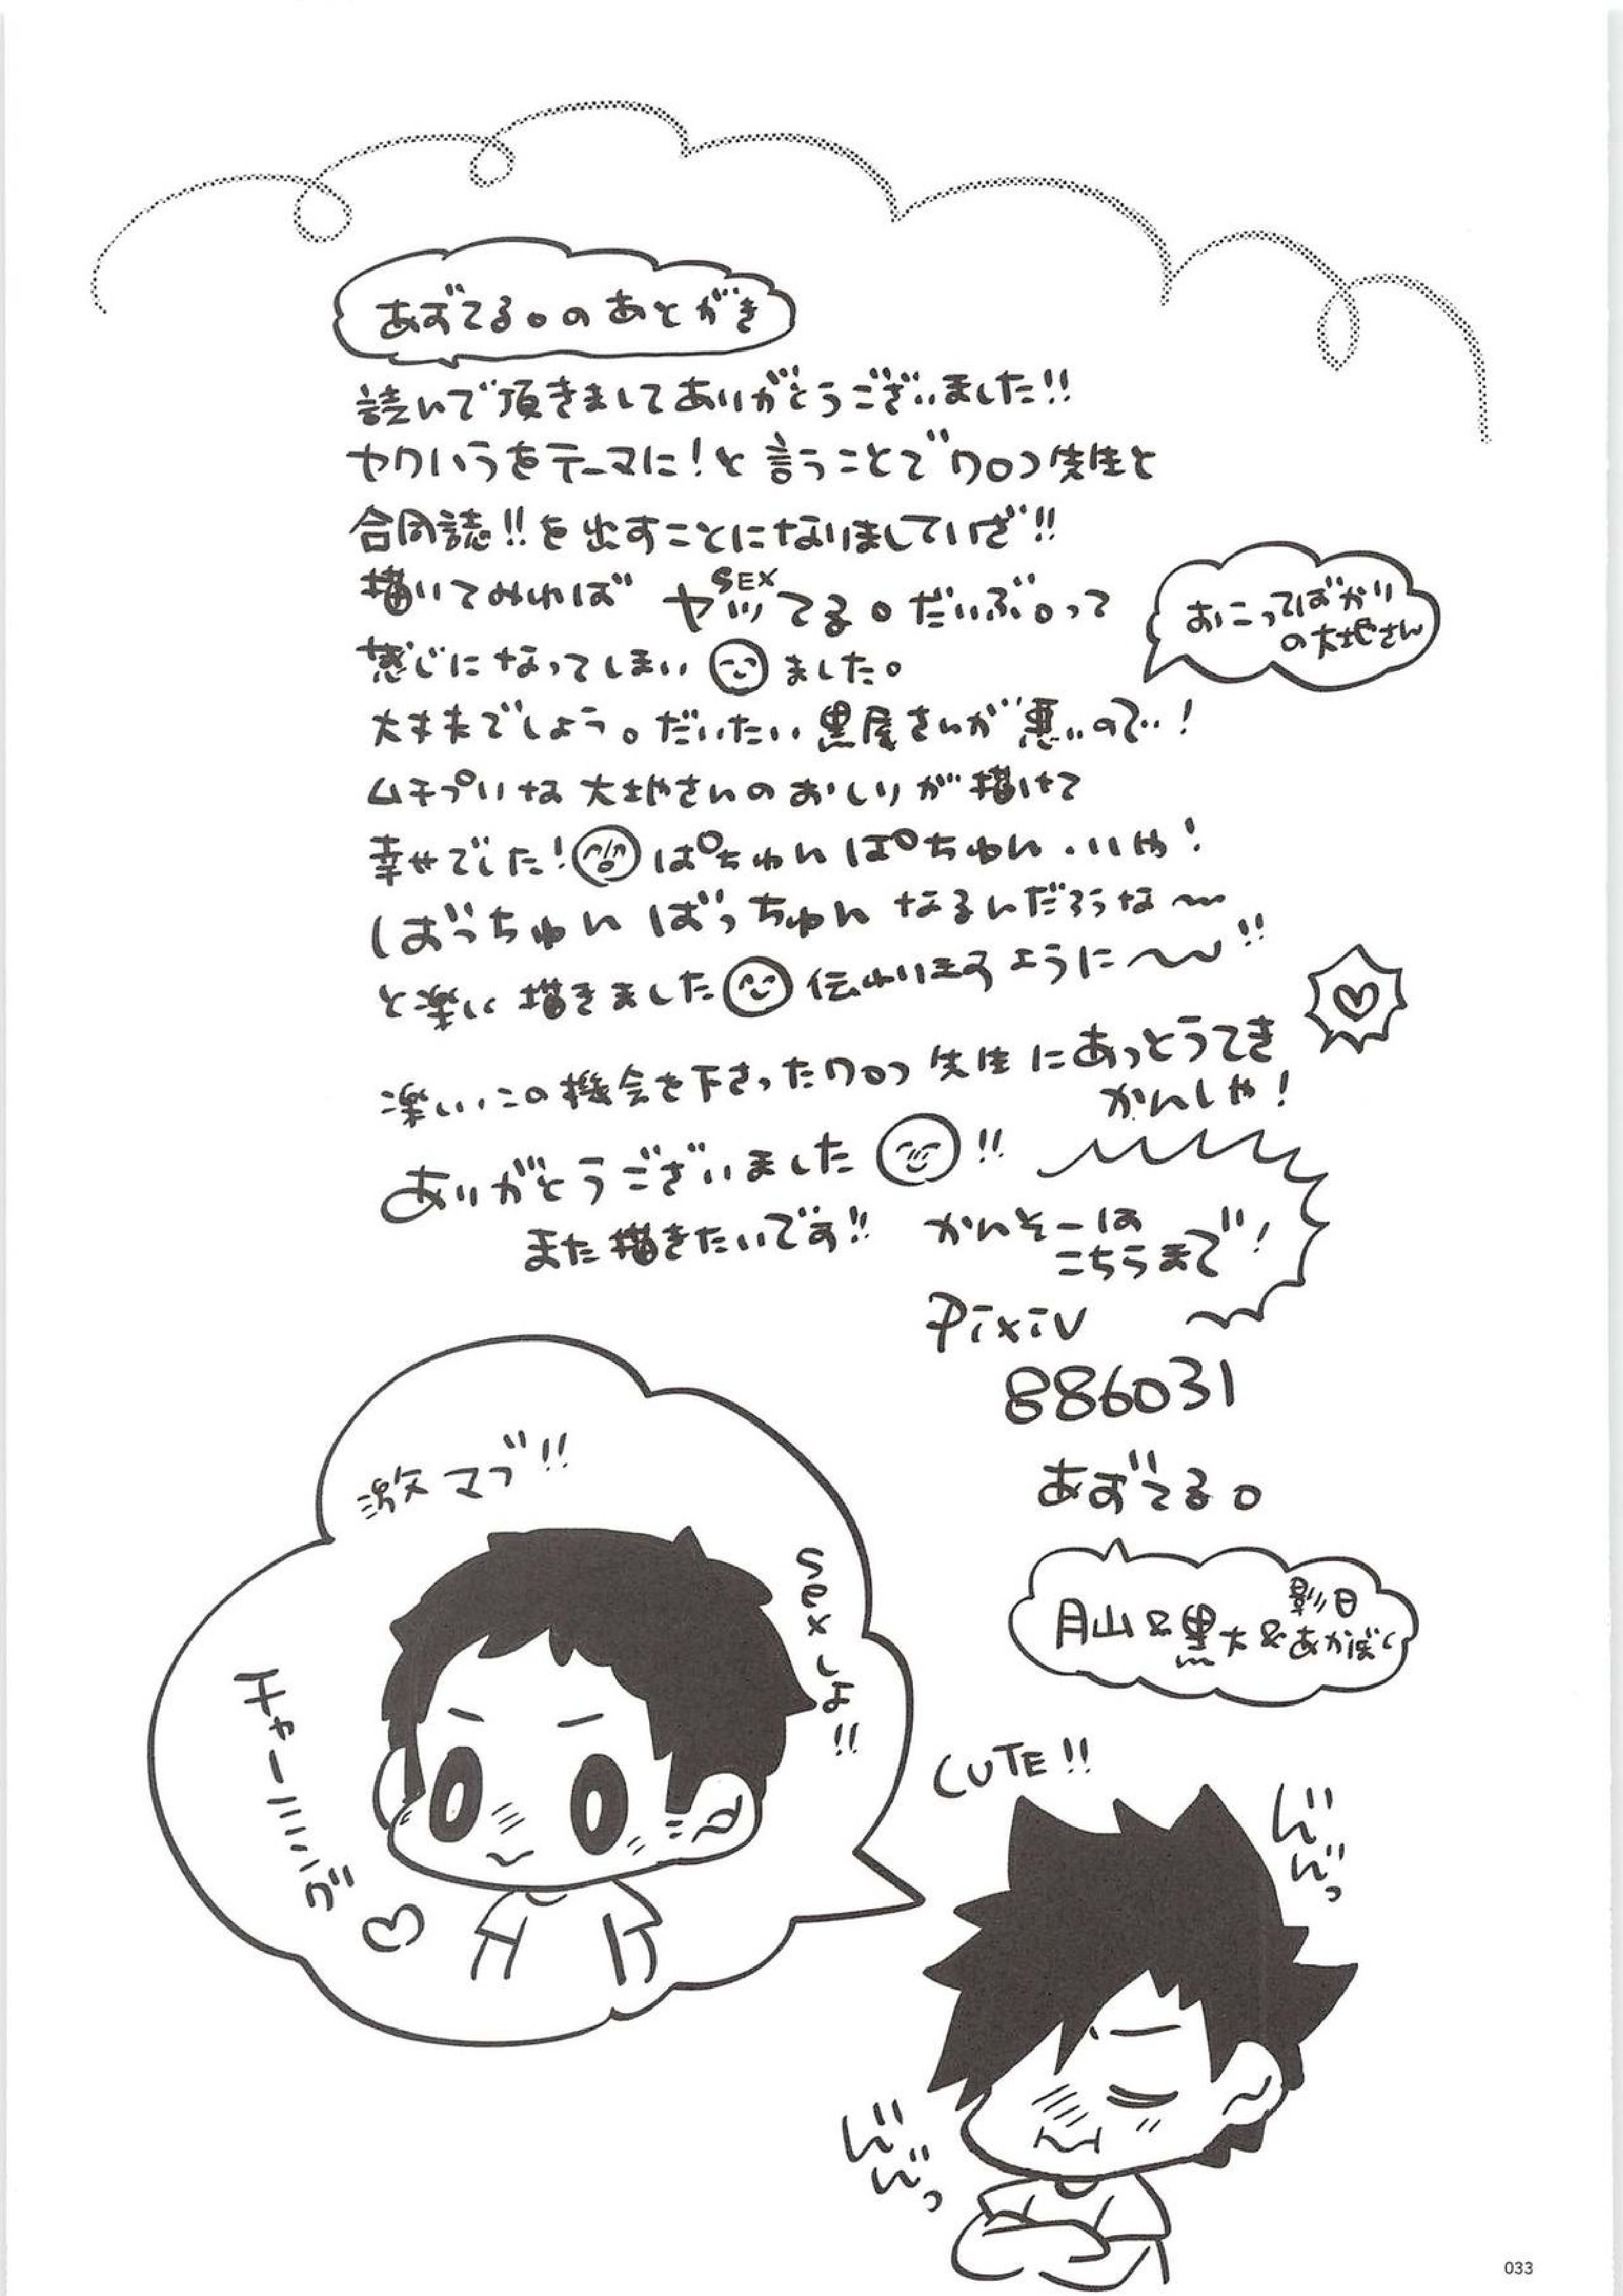 あずてる。のあとがき
読んで頂きましてありがとうございました!!
ヤクいうをテーマに!と言うことでワロフ先生と
合同誌!!を出すことになりましていざ!!
描いてみれば ヤッてる。だいぶ。って
SEX
おこってばかり
の大地さん
感じになってしまいました。
大丈夫でしょう。だいたい黒尾さんが悪いので!
ムチプリな大地さんのおしりが描けて
幸せでした!ぱちゅんぱちゅん・いや!
ばっちゅんばっちゅんなるんだろうな〜
と楽しく描きました 伝わりますように〜!!
楽しいこの機会を下さったワロフ先生にあっとうてき
かんしゃ!
ありがとうございました!!
また描きたいです!!
かんそーは
こちらまで!
Pixiv
886031
あずてる。
月山&黒大&影日
あかぼく
激マブ!!
sexしよ!!
チャーミング♡
CUTE!!
んんっ
んんっ
033